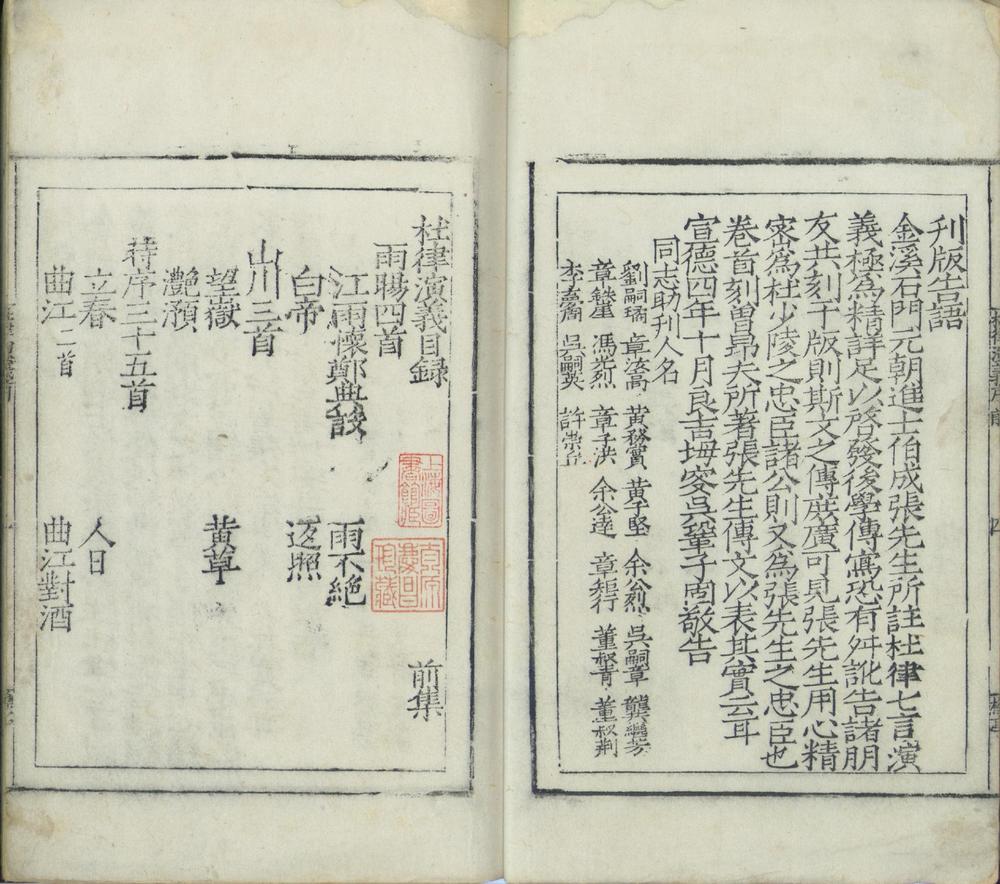 刊版告語
金溪石門元朝進士伯成張先生所註杜律七言演
義極為精詳足以啓發後學傳寫恐有舛訛告諸朋
友共刻于版則斯文之傳庶廣可見張先生用心精
宻為杜少陵之忠臣諸公則又為張先生之忠臣也
卷首刻曽昻夫所著張先生傳文以表其實云耳
宣德四年十月良吉塢客吳鞏子固敬告
同志助刋人名
劉嗣 章 黃 黃子堅 余公烈 吳嗣章 龔
章 馮光烈 章子泱 余公達 章行 董叔青 董叔荆
李 吳嗣英 許崇
杜律演義目録 前集
雨暘四首
江雨懷鄭典設 雨不絶
白帝 返照
山川三首
望嶽 黄草
灧澦
時序三十五首
立春 人日
曲江二首 曲江對酒
上海圖書館藏